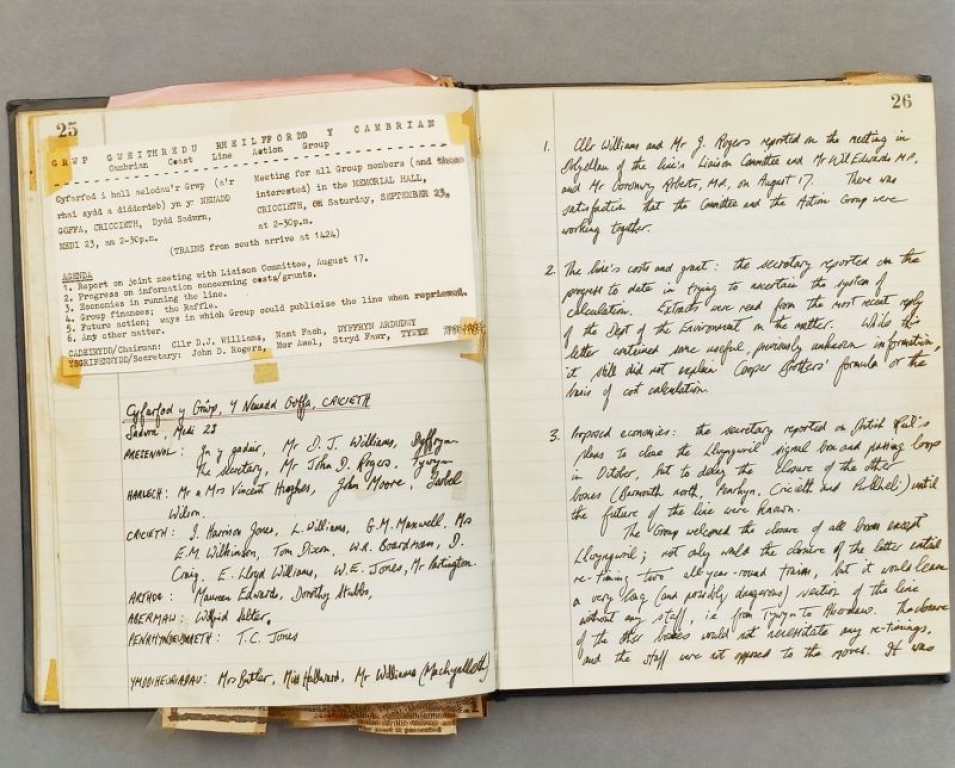 25
GRWP GWEITHREDU RHEILFFORDD Y CAMBRIAN
Cambrian Coast Line Action Group
Cyfarfod i holl aelodau'r Grwp (a'r
rhai sydd a diddordeb) yn yr NEUADD
GOFFA, CRICCIETH, Dydd Sadwrn,
MEDI 23, am 2-30p.m.
Meeting for all Group members (and those
interested) in the MEMORIAL HALL,
CRICCIETH, on Saturday, SEPTEMBER 23,
at 2-30p.m.
(TRAINS from south arrive at 1424)
AGENDA
1. Report on joint meeting with Liaison Committee, August 17.
2. Progress on information concerning costs/grants.
3. Economies in running the line.
4. Group finances; the Raffle.
5. Future action; ways in which Group could publicise the line when reprieved.
6. Any other matter.
CADEIRYDD/Chairman: Cllr D.J. Williams, Nant Fach, DYFFRYN ARDUDWY
YSGRIFENNYDD/Secretary: John D. Rogers, Mor Awel, Stryd Fawr, TYWYN
Cyfarfod y Grŵp, Y Neuadd Goffa, CRICIETH
Sadwrn, Medi 23
PRESENNOL: Yn y gadair, Mr D. J. Williams, Dyffryn
the secretary, Mr John D. Rogers, Tywyn
HARLECH: Mr a Mrs Vincent Hughes, John Moore, Isobel
Wilson.
CRICIETH: J. Harrison Jones, L. Williams, G.M. Maxwell, Mrs
E.M. Wilkinson, Tom Dixon, W.R. Boardman, D.
Craig, E. Lloyd Williams, W.E. Jones, Mr Partington.
ARTHOG: Maureen Edwards, Dorothy Stubbs,
ABERMAW: Salter.
PENRHYNDEUDRAETH: T.C. Jones
YMDDIHEURIADAU: Mrs Butler, Miss Hallward, Mr Williams (Machynlleth)
26
1. Cllr Williams and Mr J. Rogers reported on the meeting in
of the line's Liaison Committee and Mr Wil Edwards M.P.
and Mr Goronwy Roberts, M.P., on August 17. There was
satisfaction that the Committee and the Action Group were
working together.
2. The line's costs and grant: the secretary reported on the
progress to date in trying to ascertain the system of
calculation. Extracts were read from the most recent reply
of the Dept of the Environment on the matter. While this
letter contained some useful, previously unknown information,
it still did not explain Cooper Brothers' formula or the
basis of cost calculation.
3. Proposed economies: the secretary reported on British Rail's
plans to close the Llwyngwril signal box and passing loop
in October, but to delay the closure of the other
boxes (Barmouth north, Penrhyn, Cricieth and Pwllheli) until
the future of the line were known.
The Group welcomed the closure of all boxes except
Llwyngwril; not only would the closure of the latter entail
re-timing two all-year-round trains, but it would leave
a very long (and possibly dangerous) section of the line
without any staff, i.e. from Tywyn to Abermaw. The closure
of the other boxes would not necessitate any re-timings,
and the staff were not opposed to the moves. It was